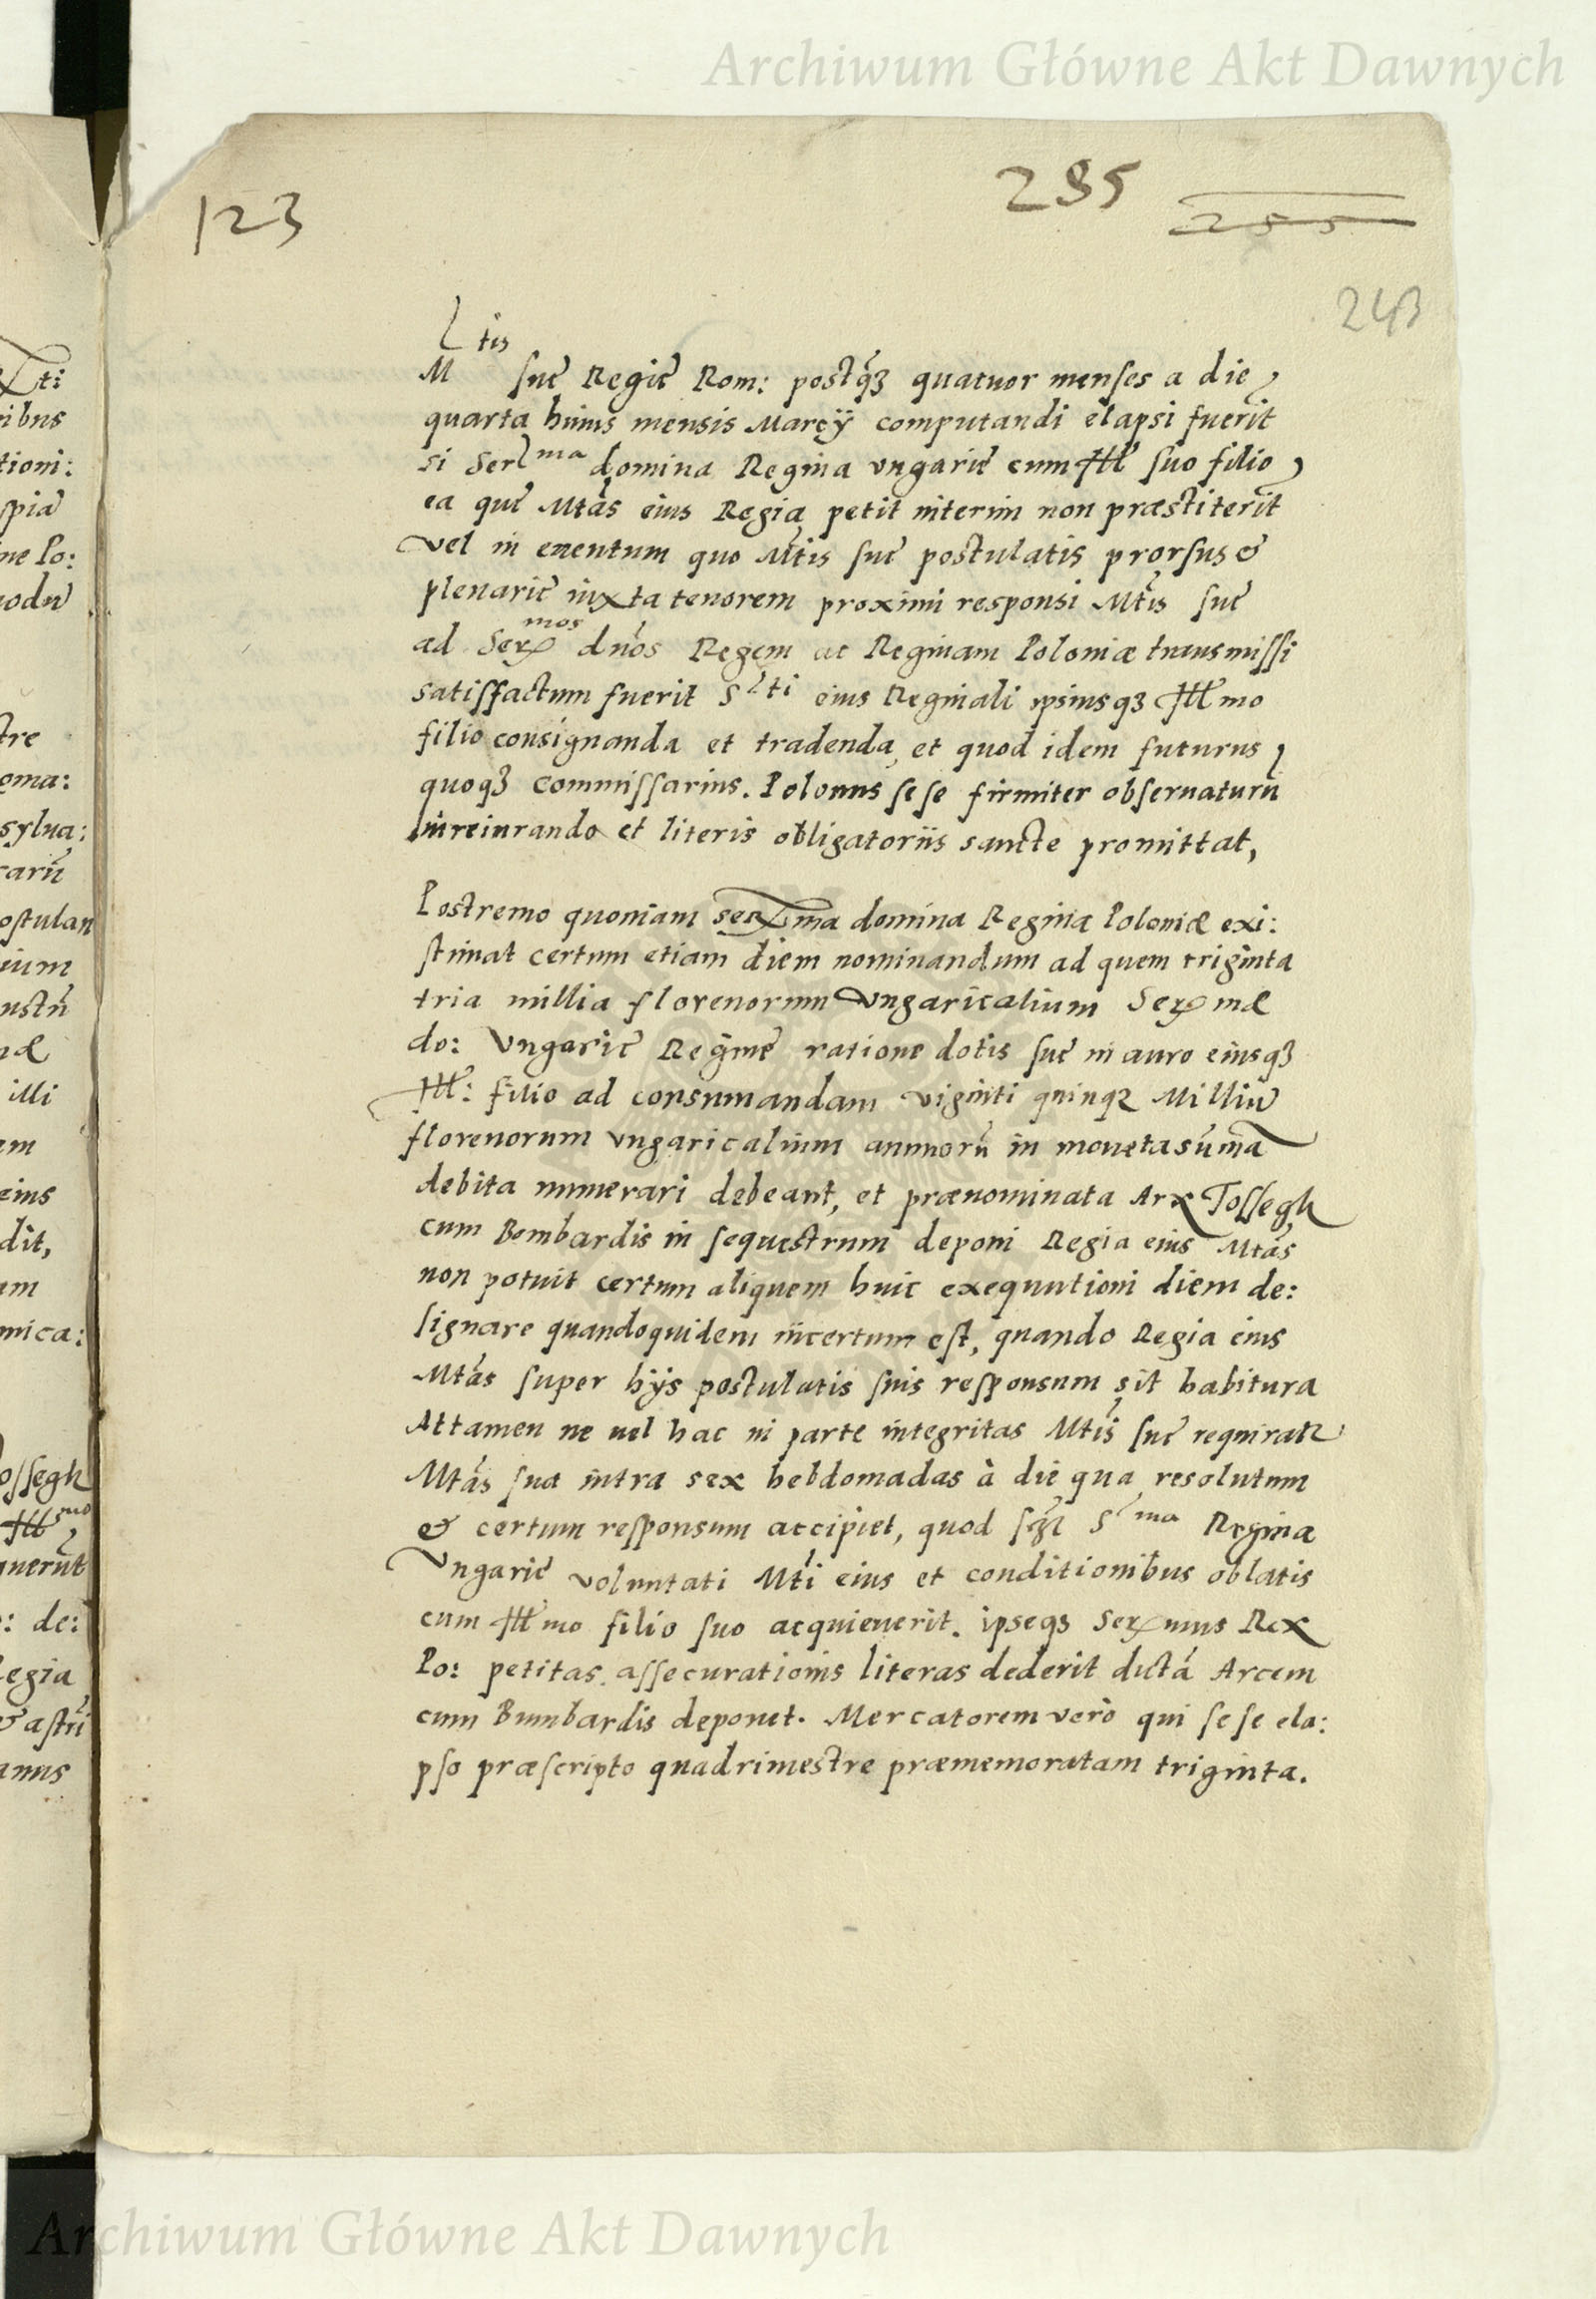 Archiwum Główne Akt Dawnych
123
295
255
243
Mtis suę Regię Rom: postq̃ʒ quatuor menses a die
quarta huius mensis Marcÿ computandi elapsi fuerit
si Serma domina Regina vngarię cum Ill suo filio
ea quę Mtas eius Regia petit interim non præstiterit
vel in euentum quo Mtis suę postulatis prorsus &
plenarię iuxta tenorem proximi responsi Mtis suę
ad Sermos dnos Regem ac Reginam Poloniæ transmissi
satisfactum fuerit Sti eius Reginali ipsiusqʒ Illmo
filio consignanda et tradenda, et quod idem futurus
quoqʒ commissarius. Polonus sese firmiter obseruaturū
iureiurando et literis obligatoriis sancte promittat,
Postremo quoniam serma domina Regina Poloniæ exi:
stimat certum etiam diem nominandum ad quem triginta
tria millia florenorum vngaricalium Sermæ
do: Vngarię Reginę ratione dotis suę in auro eiusqʒ
Ill: filio ad consumandam viginti quinqʒ Milliū
florenorum vngaricalium annuorū in moneta sum̃a
debita numerari debeant, et prænominata Arx Tossegh
cum Bombardis in sequestrum deponi Regia eius Mtas
non potuit certum aliquem huic exequutioni diem de:
signare quandoquidem incertum est, quando Regia eius
Mtas super hÿs postulatis suis responsum sit habitura
Attamen ne uel hac in parte integritas Mtis suę requirat2
Mtas sua intra sex hebdomadas à die qua resolutum
& certum responsum accipiet, quod Sma Regina
Vngarię voluntati Mti eius et conditionibus oblatis
cum Illmo filio suo acquieuerit. ipseqʒ Sermus Rex
Po: petitas assecurationis literas dederit dictā Arcem
cum Bumbardis deponet. Mercatorem verò qui sese ela:
pso præscripto quadrimestre præmemoratam triginta.
ti:
nibus
tioni:
spiā
ne Po:
modū
stre
oma:
sylua:
carū
postulan
uium
næ
illi
em
eius
dit,
um
mica:
ossegh
Illmo
: de:
Regia
& astri
anus
Archiwum Główne Akt Dawnych